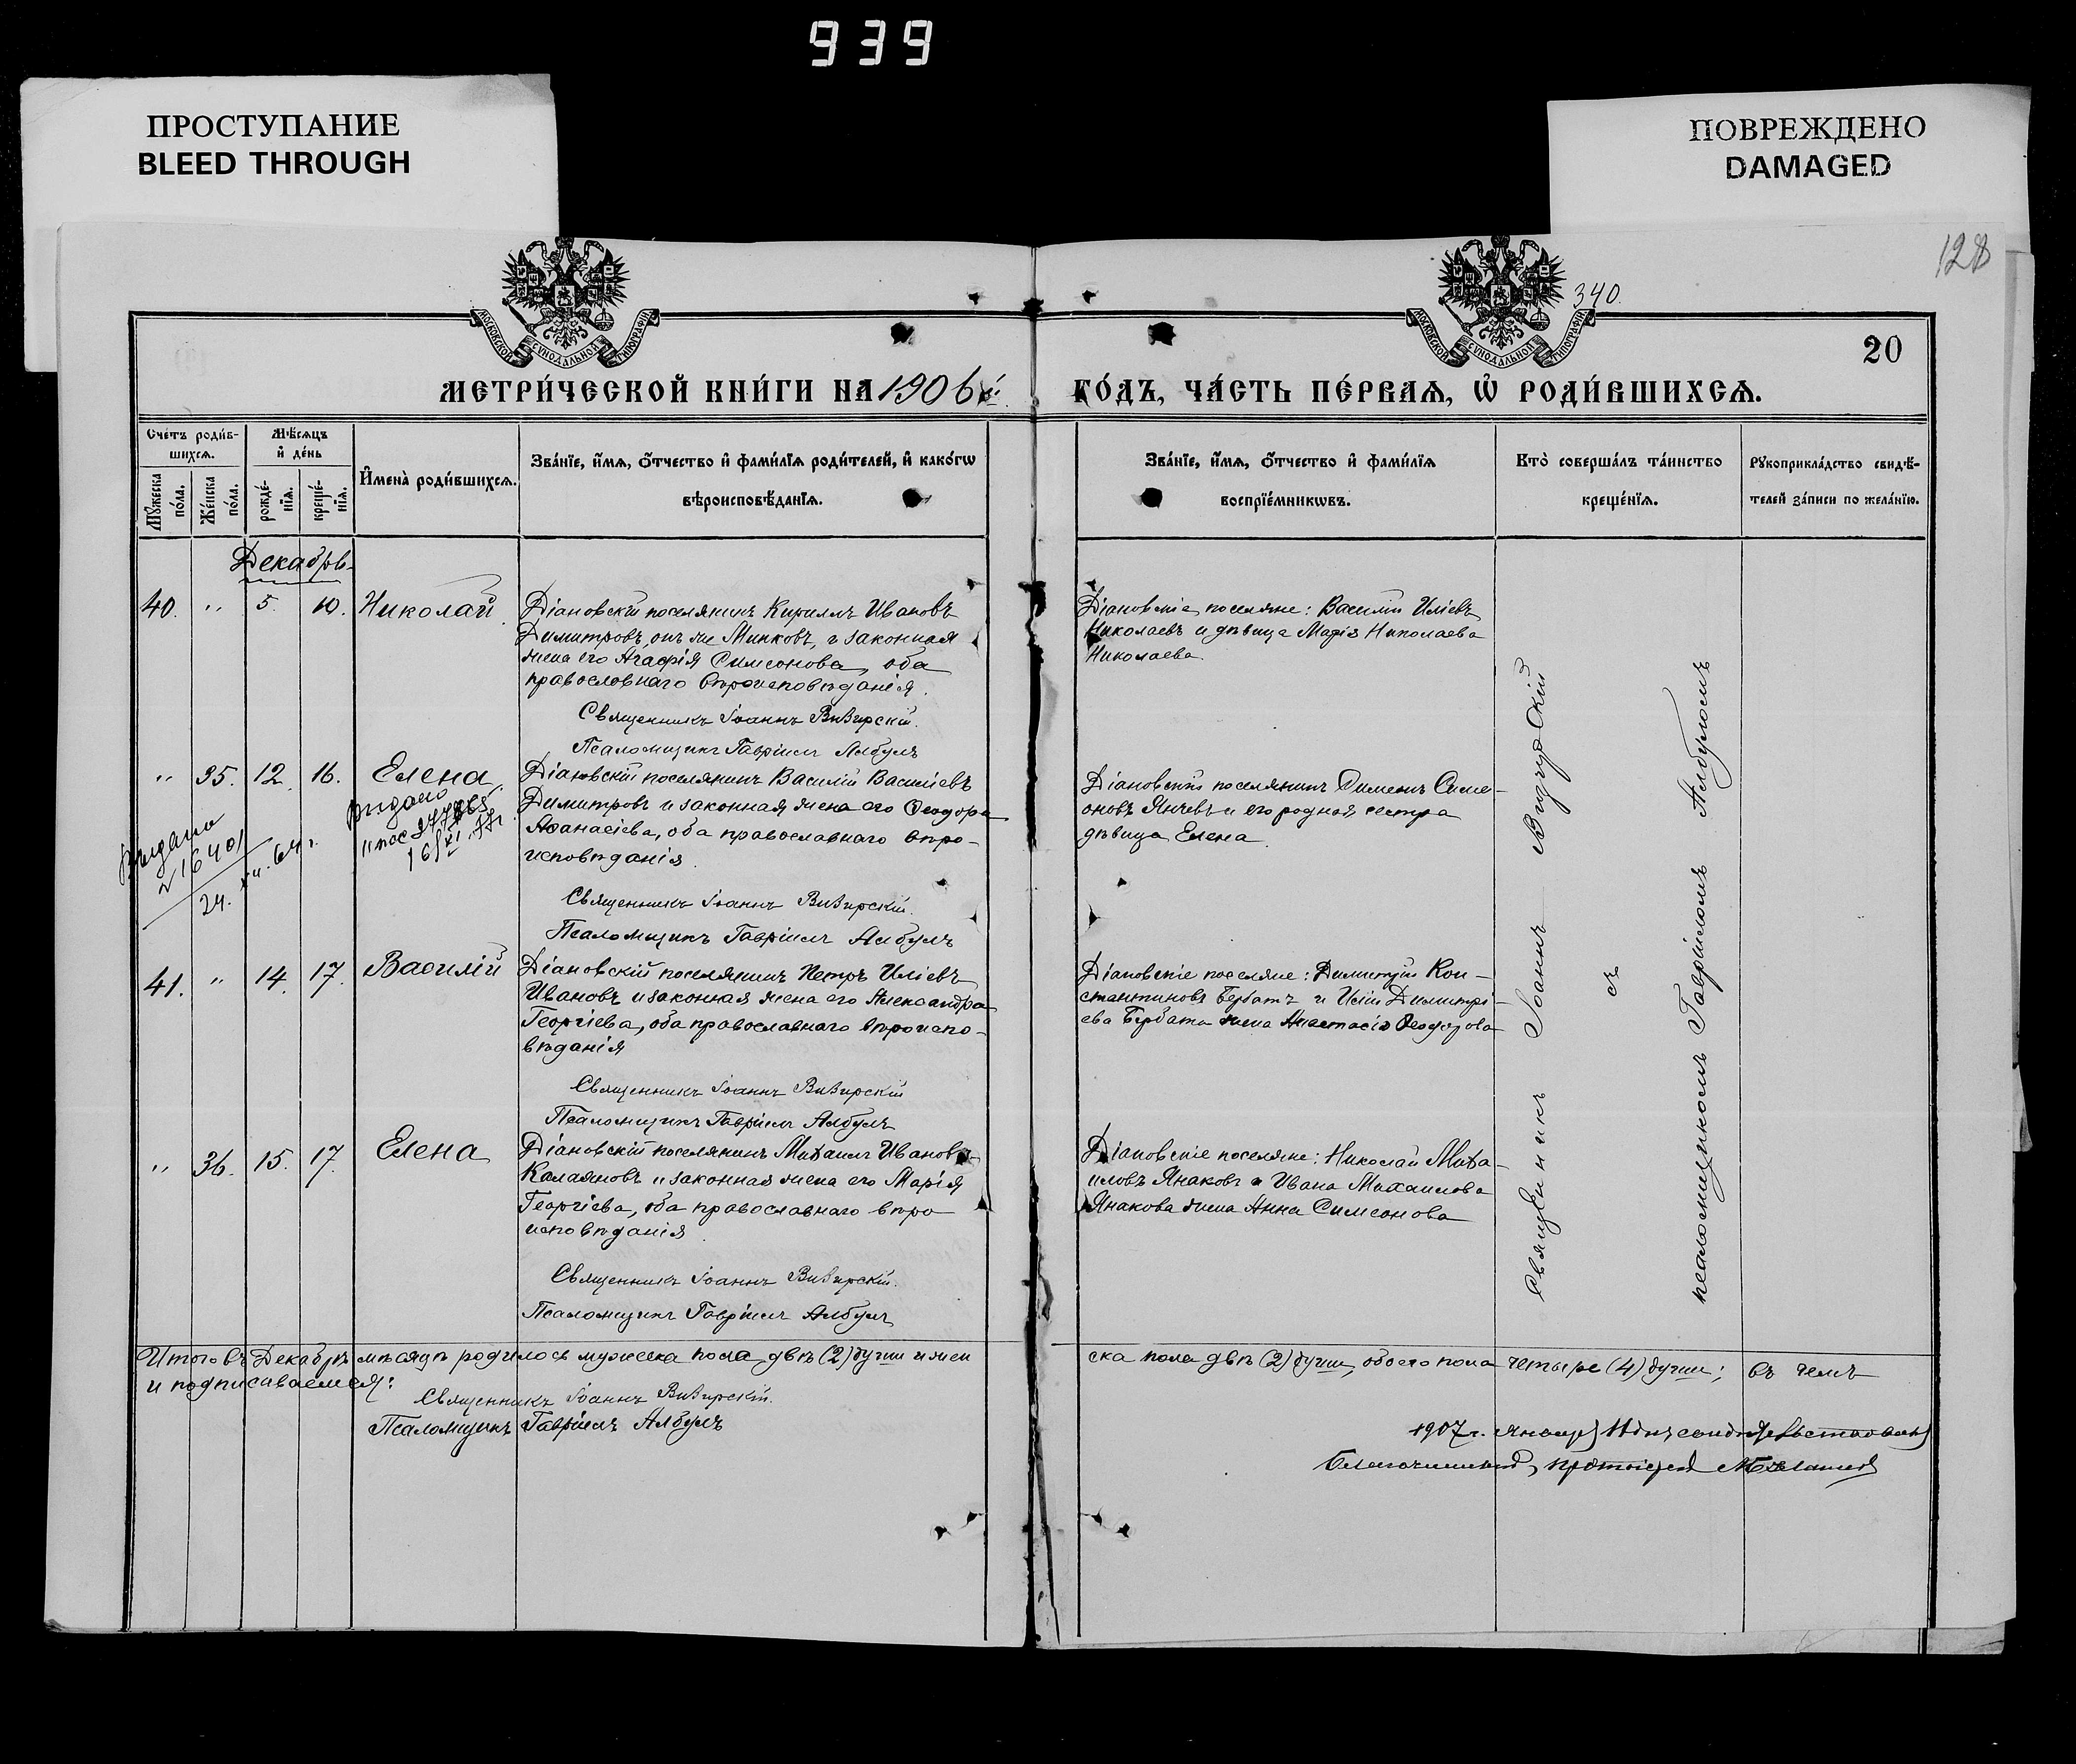 939
ПРОСТУПАНИЕ
BLEED THROUGH
ПОВРЕЖДЕНО
DAMAGED
128
340.
МОСКОВСКОЙ СѴНОДАЛЬНОЙ ТИПОГРАФІИ
МОСКОВСКОЙ СѴНОДАЛЬНОЙ ТИПОГРАФІИ
20
МЕТРИ́ЧЕСКОЙ КНИ́ГИ НА 1906й
ГО́ДЪ, ЧА́СТЬ ПЕ́РВАѦ, Ѡ҆ РОДИ́ВШИХСѦ.
Сче́тъ роди́в-
шихсѧ.
Мѣ́сѧцъ
и҆ де́нь
Мꙋ́жеска
по́ла.
Же́нска
по́ла.
рожде́-
нїѧ.
креще́-
нїѧ.
И҆мена̀ роди́вшихсѧ.
Зва́нїе, и҆́мѧ, ѻ҆́тчество и҆ фами́лїѧ роди́телей, и҆ како́гѡ
вѣроисповѣ́данїѧ.
Зва́нїе, и҆́мѧ, ѻ҆́тчество и҆ фами́лїѧ
воспрїе́мникѡвъ.
Кто̀ соверша́лъ та́инство
креще́нїѧ.
Рꙋкоприкла́дство свидѣ́-
телей за́писи по жела́нїю.
Декабрь
40. " 5. 10. Николай
Діановскій поселянинъ Кириллъ Ивановъ
Димитровъ, онъ же Минковъ, и законная
жена его Агафія Симеонова, оба
православнаго вѣроисповѣданія.
Священникъ Іоаннъ Визирскій.
Псаломщикъ Гавріилъ Албулъ
Діановскіе поселяне: Василій Иліевъ
Николаевъ и дѣвица Марія Николаева
Николаева.
" 35. 12. 16. Елена
Діановскій поселянинъ Василій Василіевъ
Димитровъ и законная жена его Ѳеодора
Аѳанасіева, оба православнаго вѣро-
исповѣданія
Священникъ Іоаннъ Визирскій.
Псаломщикъ Гавріилъ Албулъ
Діановскій поселянинъ Симеонъ Симе-
оновъ Янчевъ и его родная сестра
дѣвица Елена.
Выдано
16401
24. XII. 64 г.
Выдано
41. " 14. 17. Василій
Діановскій поселянинъ Петръ Иліевъ
Ивановъ и законная жена его Александра
Георгіева, оба православнаго вѣроиспо-
вѣданія
Священникъ Іоаннъ Визирскій
Псаломщикъ Гавріилъ Албулъ
Діановскіе поселяне: Димитрій Кон-
стантиновъ Бербатъ и Иліи Димитрі-
ева Бербата жена Анастасія Ѳеодорова
" 36. 15. 17. Елена
Діановскій поселянинъ Михаилъ Ивановъ
Калаяновъ и законная жена его Марія
Георгіева, оба православнаго вѣро
исповѣданія.
Священникъ Іоаннъ Визирскій.
Псаломщикъ Гавріилъ Албулъ
Діановскіе поселяне: Николай Миха-
иловъ Янаковъ и Ивана Михаилова
Янакова жена Анна Симеонова
Священникъ Іоаннъ Визирскій
съ
псаломщикомъ Гавріиломъ Албуломъ
Итого въ Декабрѣ мѣсяцѣ родилось мужеска пола двѣ (2) души и жен
ска пола двѣ (2) души, обоего пола четыре (4) души; въ чемъ
и подписываемся:
Священникъ Іоаннъ Визирскій.
Псаломщикъ Гавріилъ Албулъ
1907 г. Января
Благочинный, протоіерей